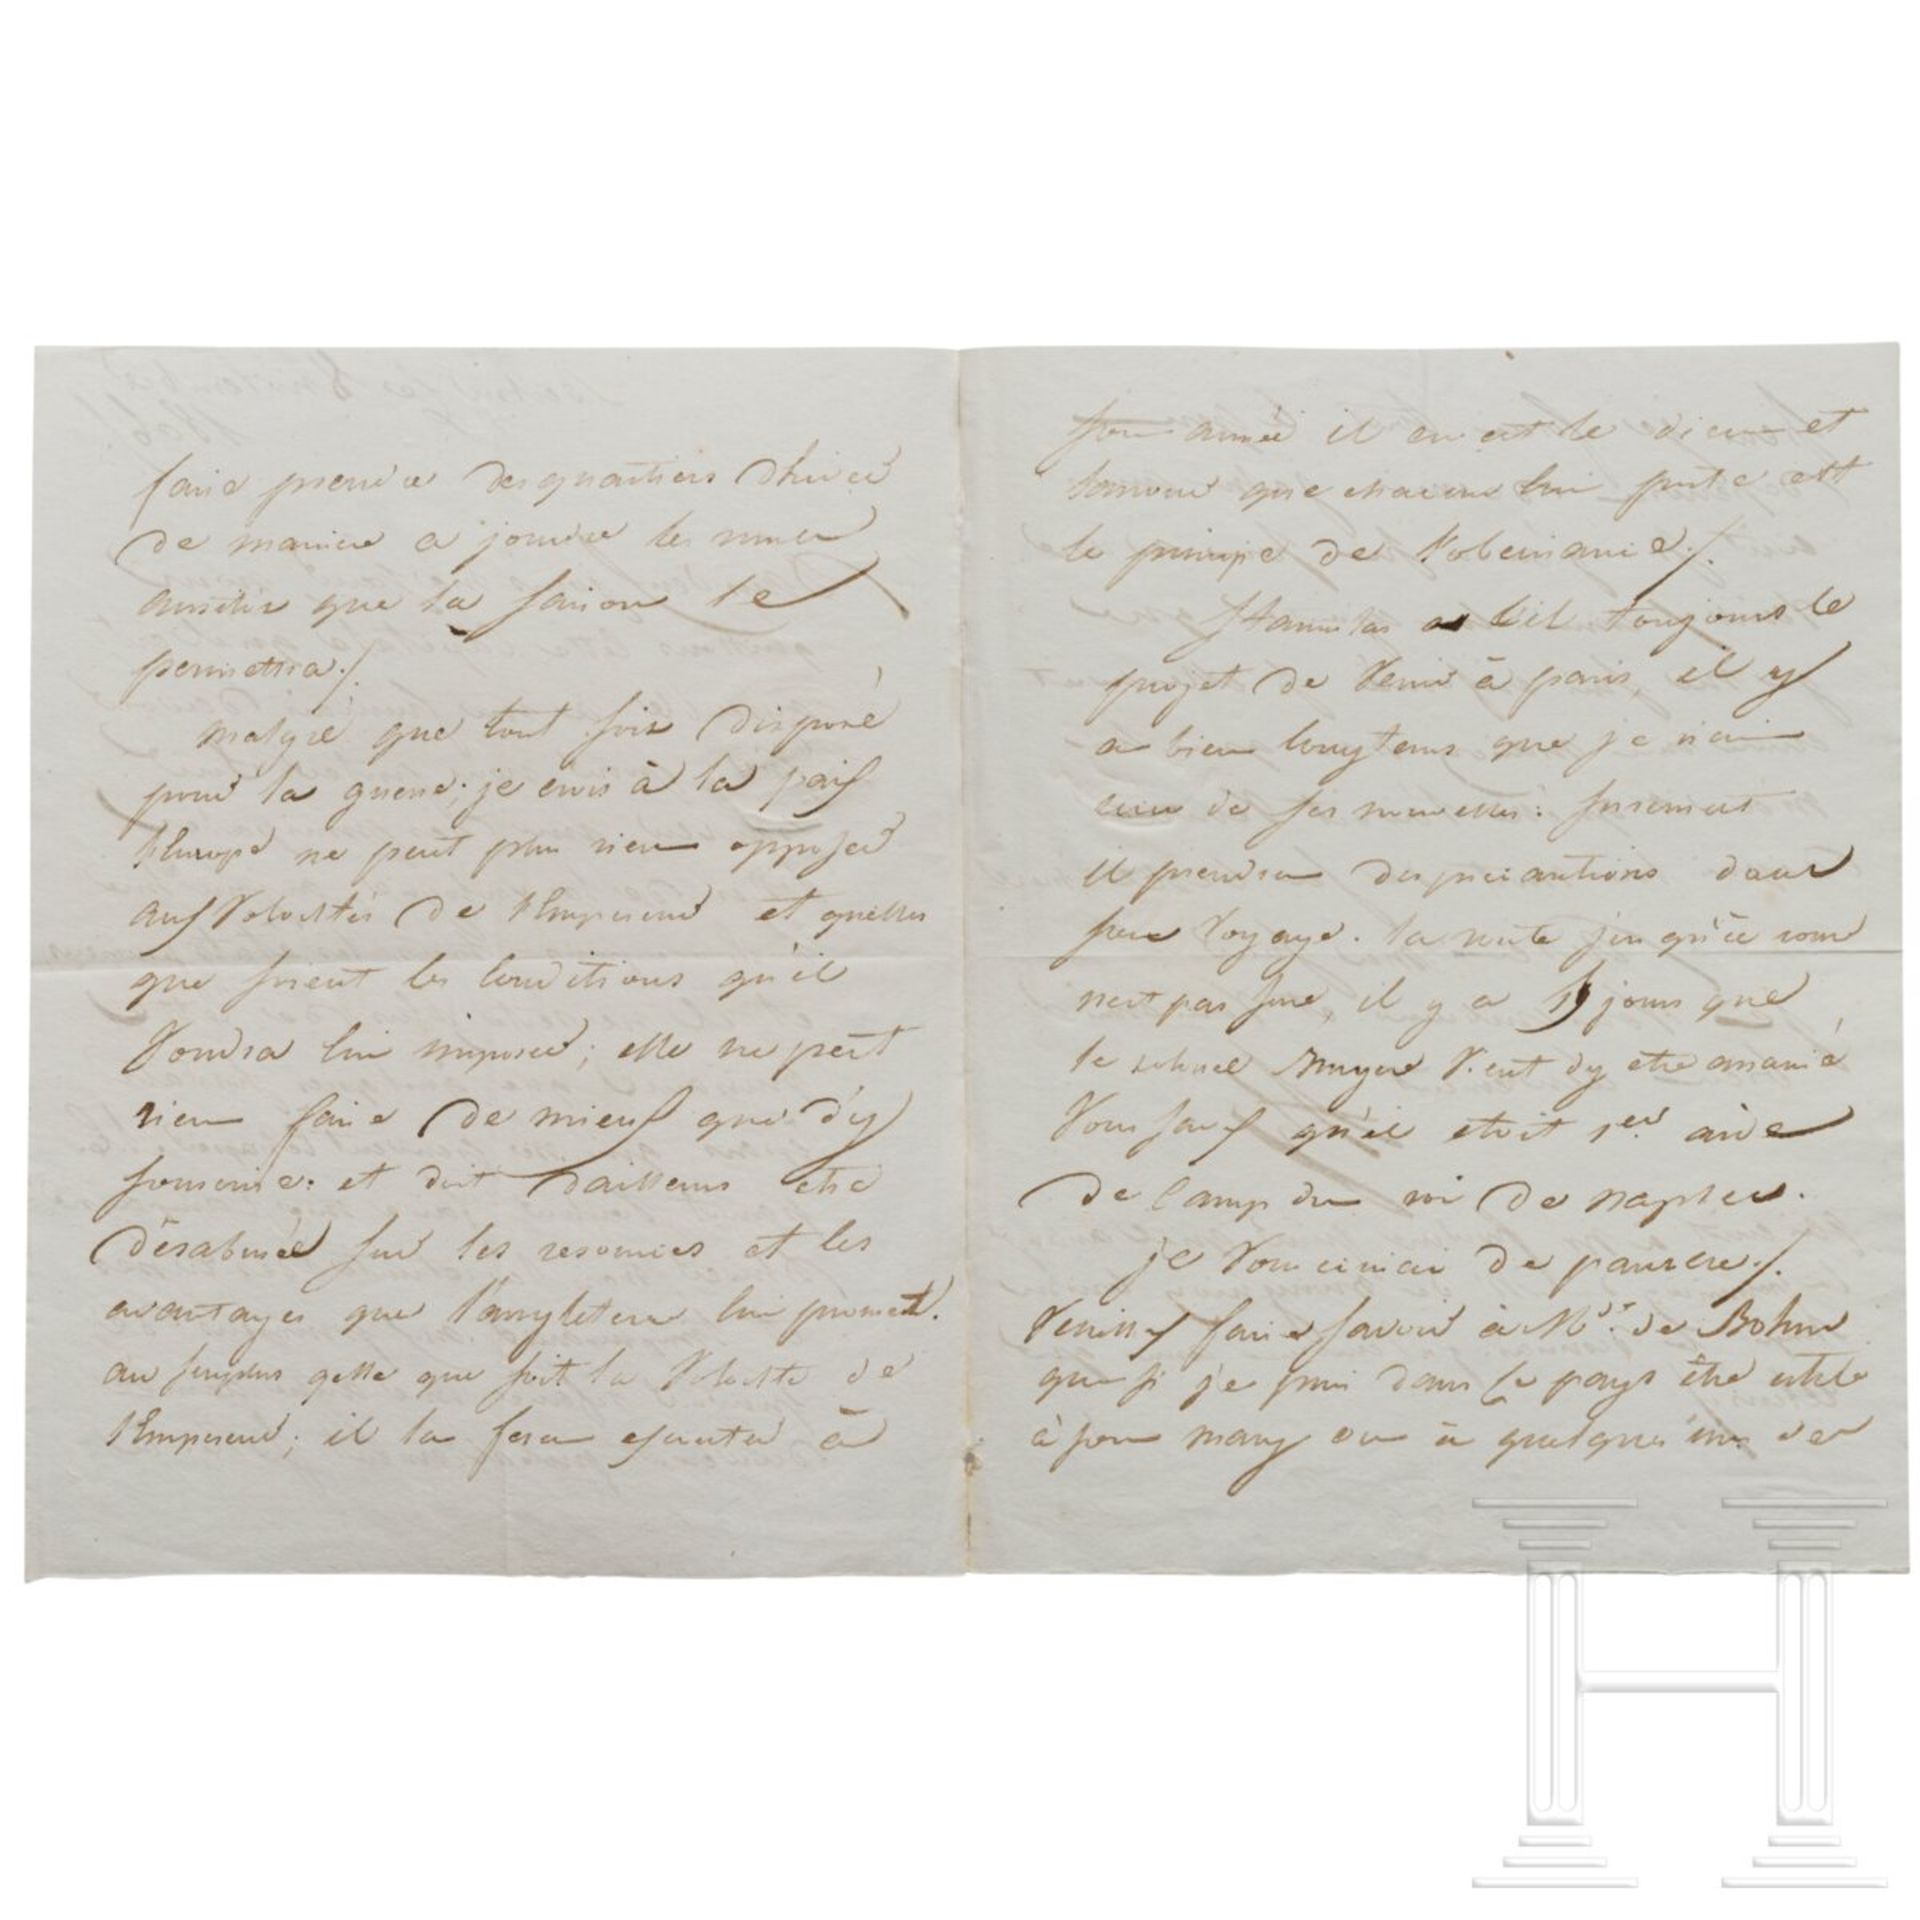 faire prendre des quartiers d'hiver
de maniere a joindre les
aussitôt que la saison le
permettra.
malgré que tout soit disposé
pour la guerre; je crois à la paix
l'Europe ne peut plus rien opposer
aux Volontés de l'Empereur et quelles
que soient les Conditions qu'il
Voudra lui imposer; elle ne peut
rien faire de mieux que d'y
souscrire: et doit dailleurs être
désabusée sur les resources et les
avantages que l'angleterre lui promet.
au surplus qelle que soit la Volonté de
l'Empereur; il la fera executer à
son armée il en est le dieu et
lamour que chacun lui porte est
le principe de
Stanislas a til toujours le
projet de Venir à paris, il y
a bien longtems que je n'ai
de ses nouvelles: surement
il prendra des precautions dans
son Voyage. la route jusqu'à rome
nest pas sure, il y a jours que
le colonel Vient dy etre
Vous savez qu'il etoit 1er aide
de Camp du roi de naples.
je Vous de
Veuillez faire savoir à Me. de Bohm
que si je puis dans ce pays être utile
à son mary ou à quelques uns de